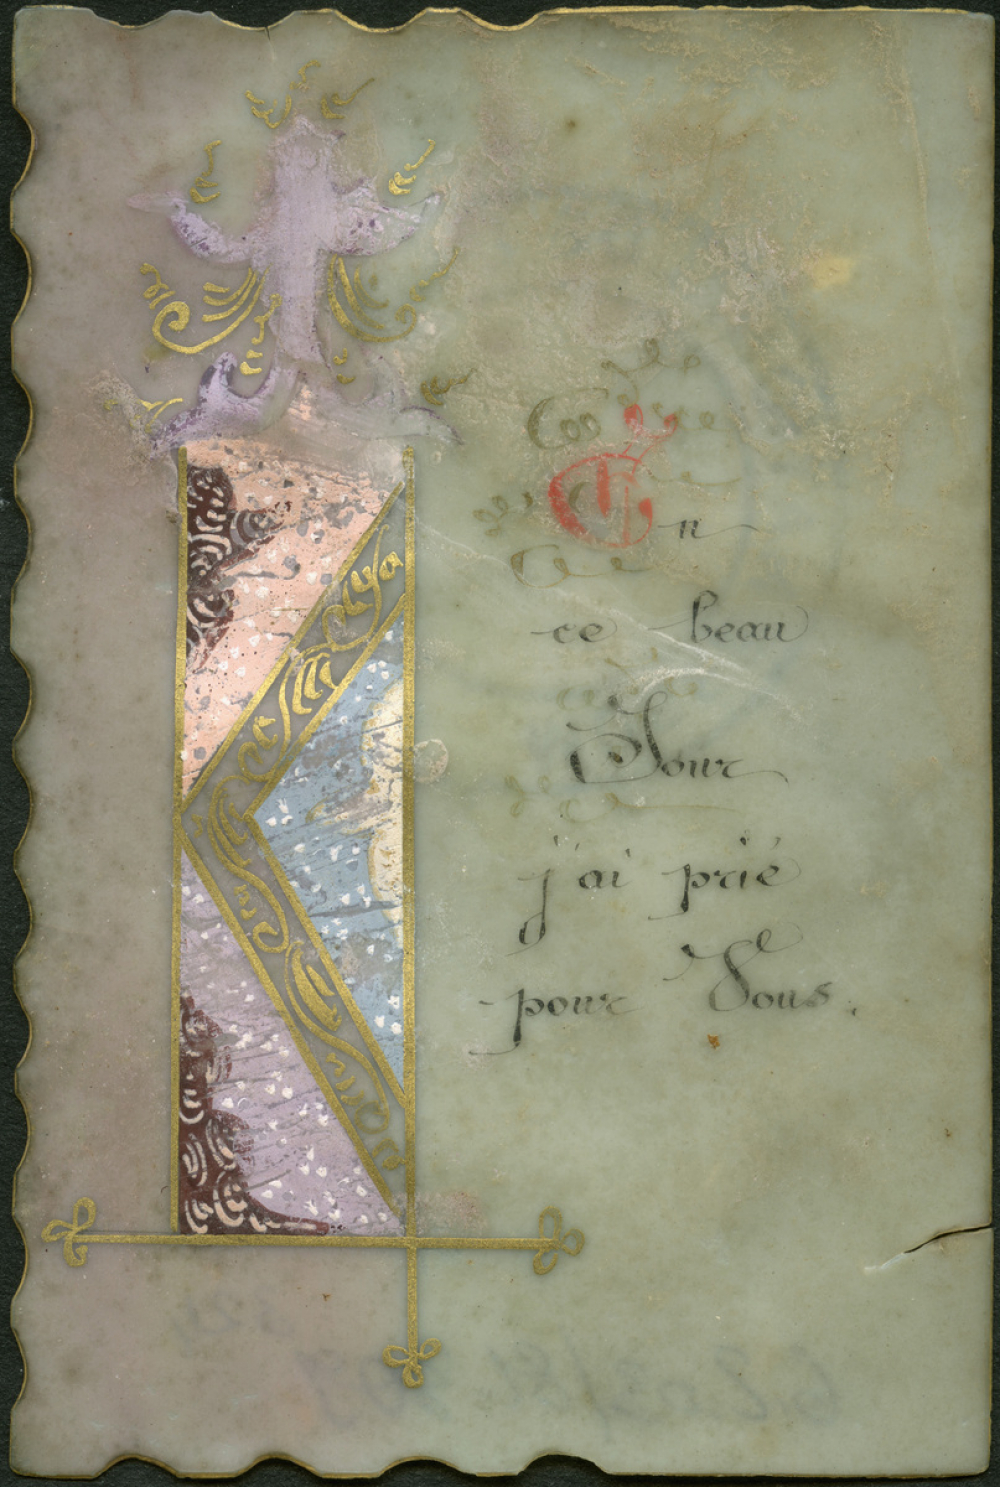 En
ce beau
Jour
j'ai prié
pour Vous.